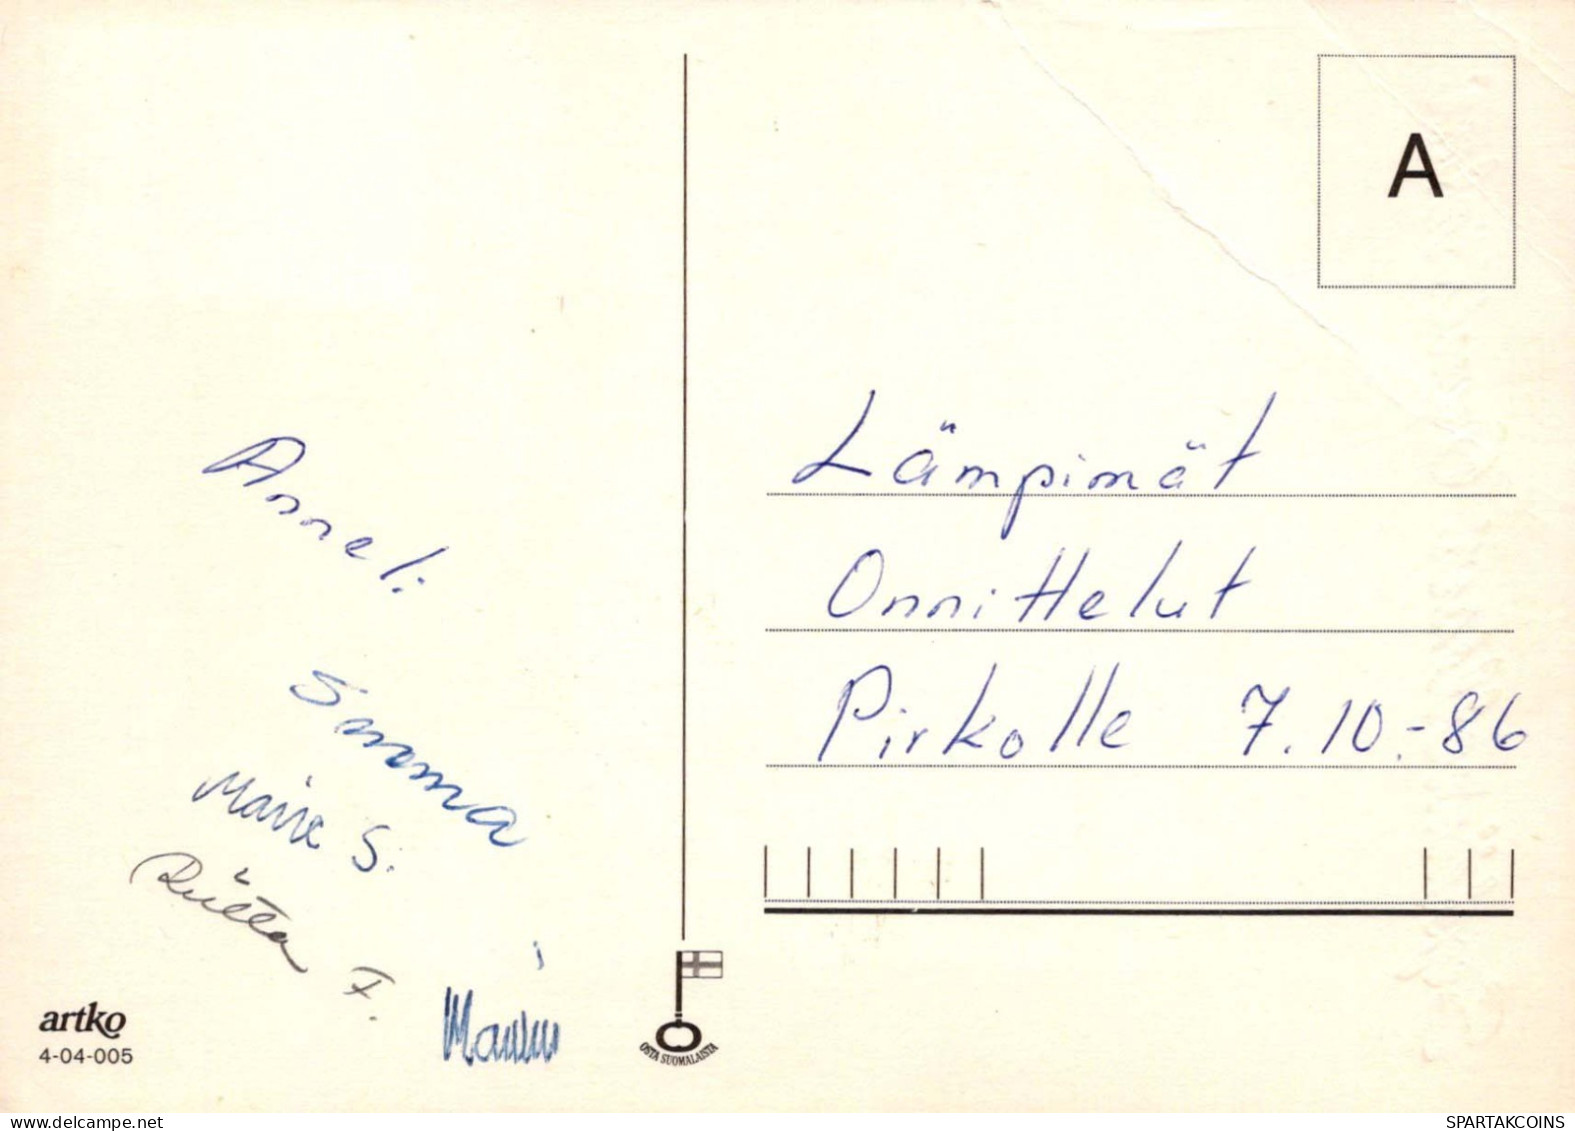 A
Anneli
Lämpimät
Onnittelut
Pirkolle 7.10.-86
Sinama
Marja S.
Riitta F.
artko
4-04-005
OSTA SUOMALAISTA
delcampe.net
SPARTAKCOINS